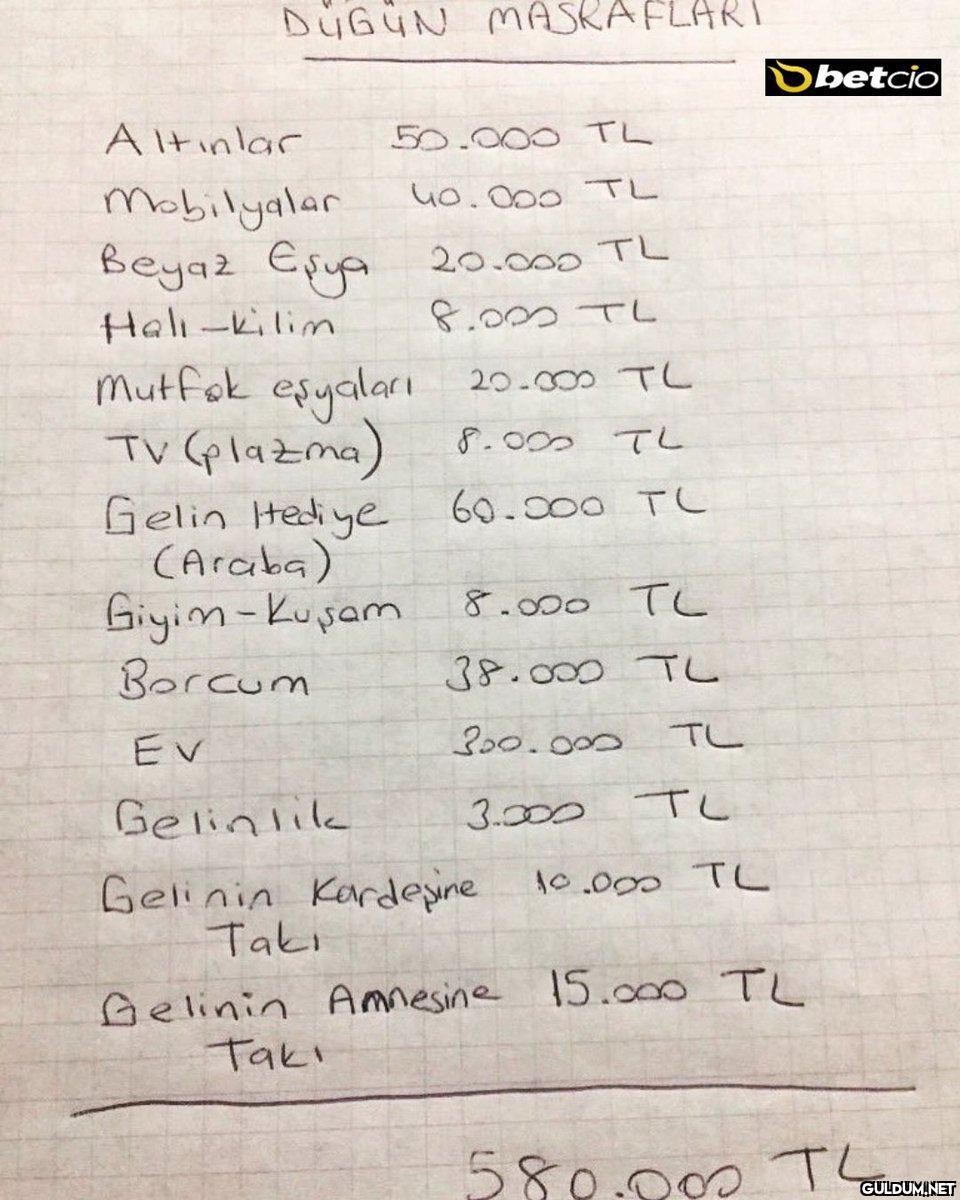 DÜĞÜN MASRAFLARI
betcio
Altınlar 50.000 TL
Mobilyalar 40.000 TL
Beyaz Eşya 20.000 TL
Halı-kilim 8.000 TL
Mutfak eşyaları 20.000 TL
TV (plazma) 8.000 TL
Gelin Hediye 60.000 TL
(Araba)
Giyim-Kuşam 8.000 TL
Borcum 38.000 TL
EV 300.000 TL
Gelinlik 3.000 TL
Gelinin Kardeşine 10.000 TL
Takı
Gelinin Annesine 15.000 TL
Takı
580.000 TL
GULDUM.NET